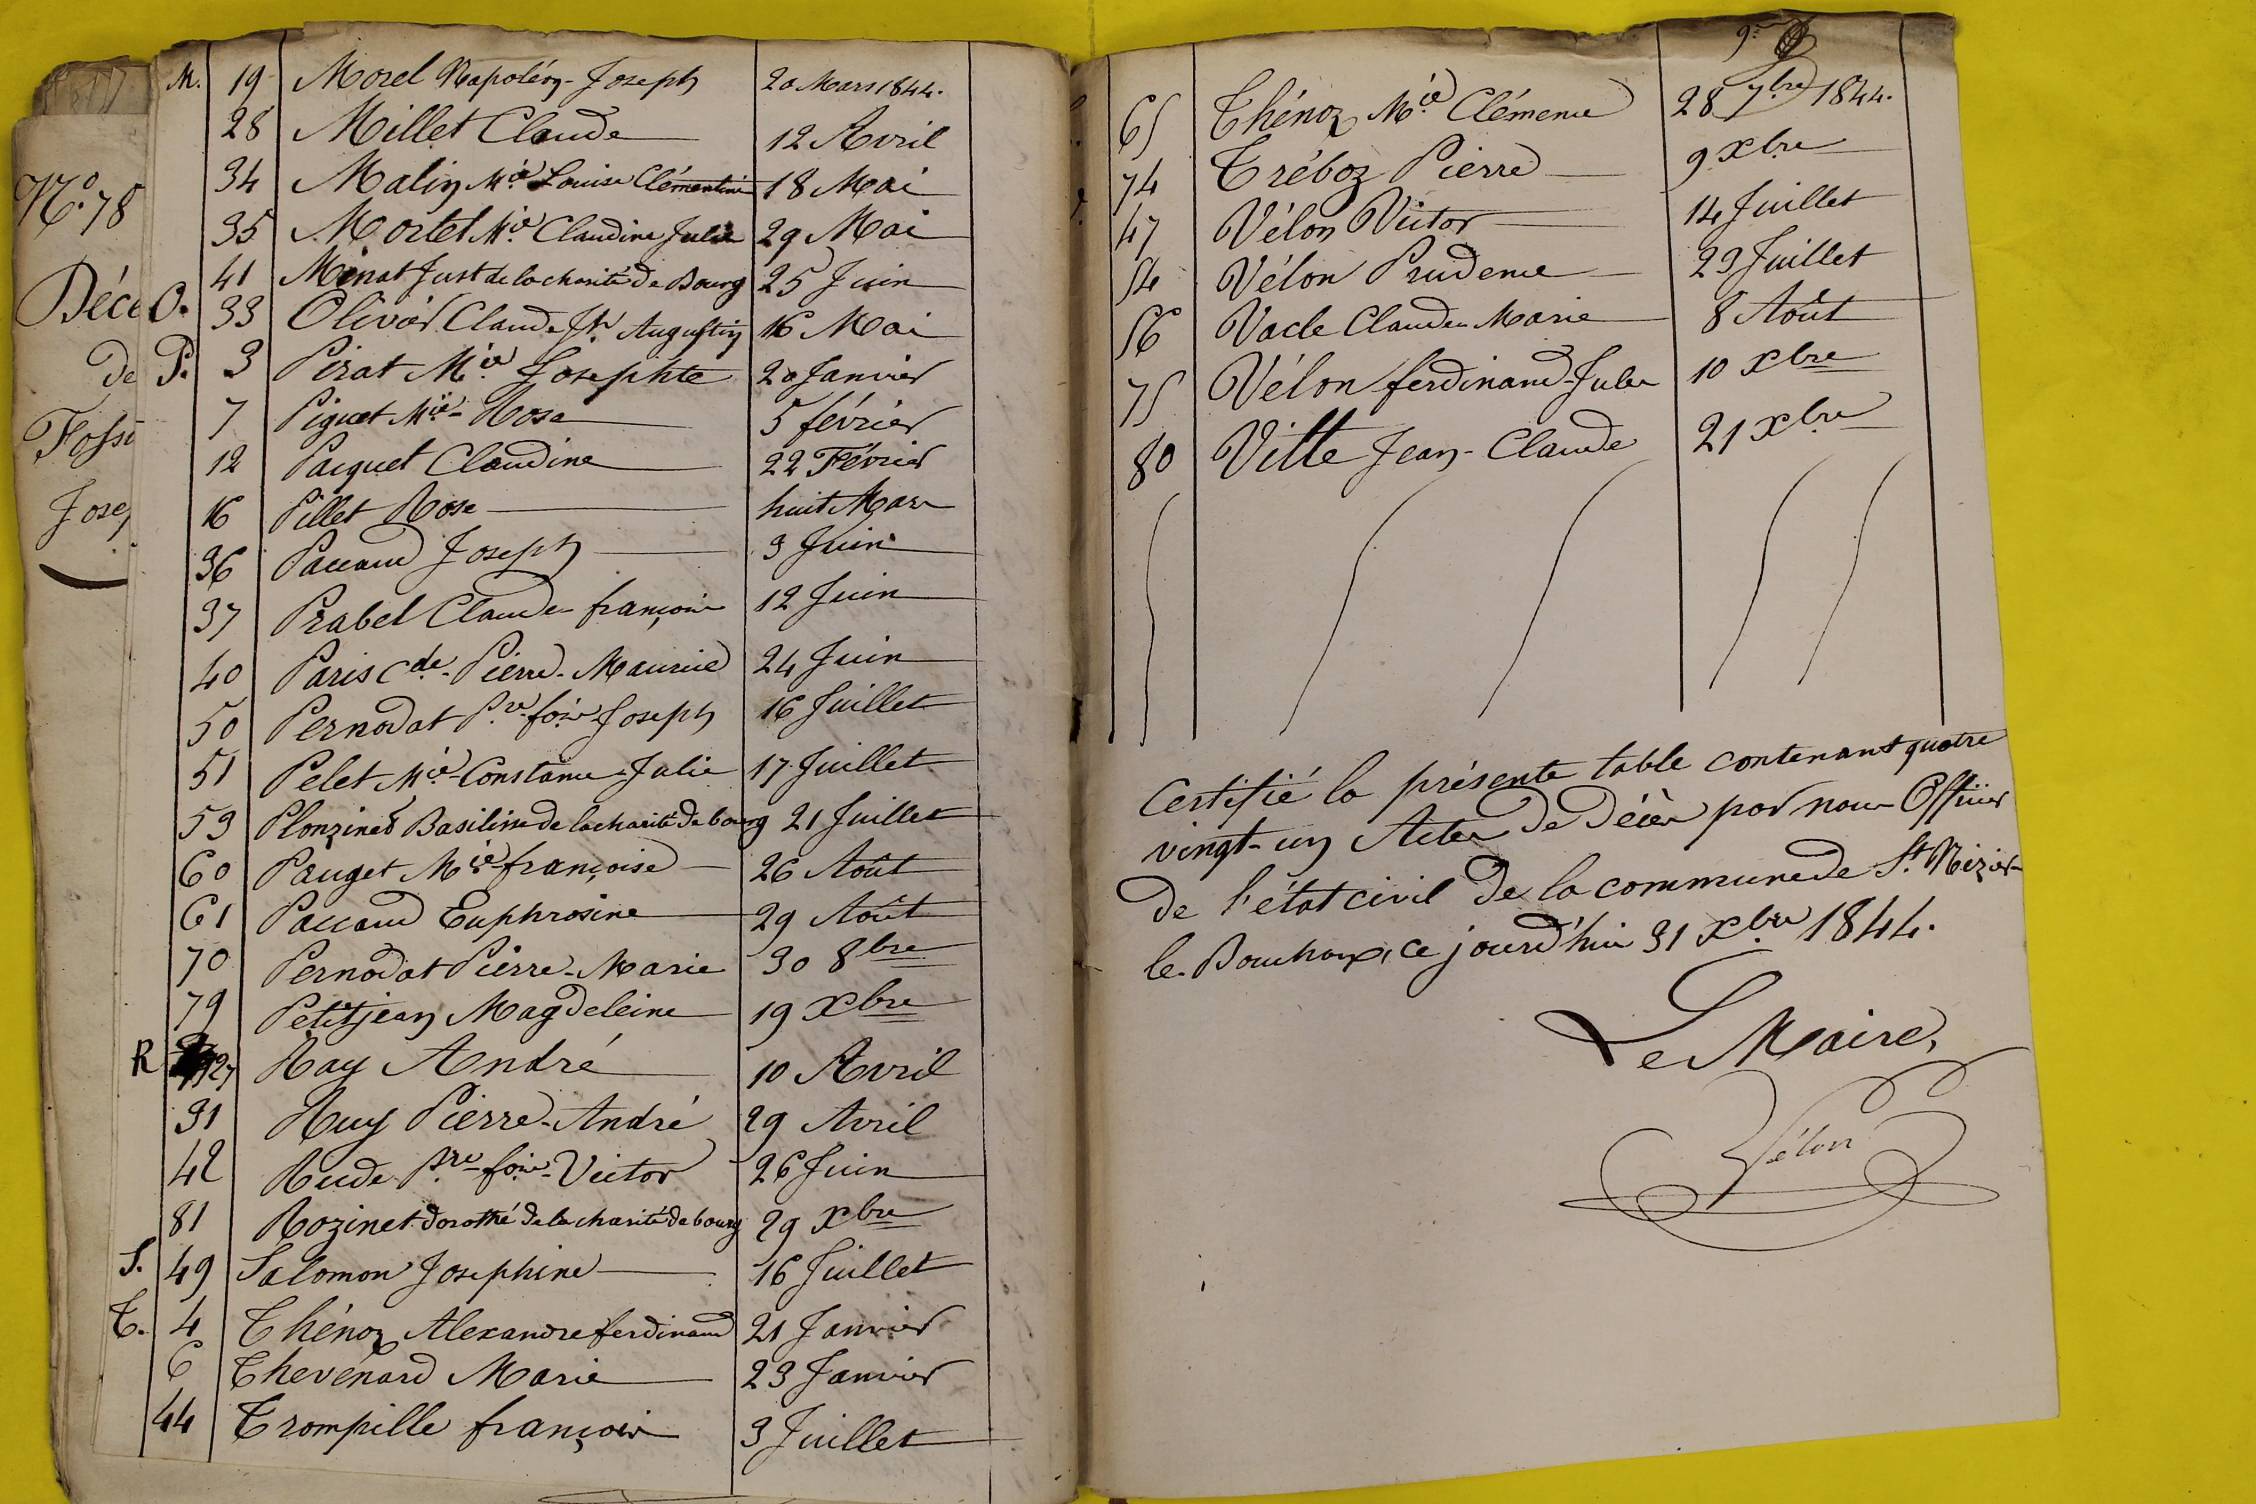 N.º 78
Déce
de
Fosse
Jose
M. 19 Morel Napoléon-Joseph 20 Mars 1844.
28 Millet Claude 12 Avril
34 Malin M.ie Louise Clémentine 18 Mai
35 Mortel M.ie Claudine Julie 29 Mai
41 Minat Just de la charité de Bourg 25 Juin
O. 33 Olivier Claude Jh Augustin 16 Mai
P. 3 Pirat M.ie Josephte 20 Janvier
7 Piguet M.ie-Rose 5 février
12 Paiquet Claudine 22 Février
16 Pillet Rose huit Mars
36 Paccaud Joseph 3 Juin
37 Prabel Claude françois 12 Juin
40 Paris Cde-Pierre-Maurice 24 Juin
50 Pernodat P.re-fois-Joseph 16 Juillet
51 Pelet M.ie-Constance-Julie 17 Juillet
59 Plonzined Basilisse de la charité de bourg 21 Juillet
60 Pauget M.ie françoise 26 Août
61 Paccaud Euphrosine 29 Août
70 Pernodat Pierre-Marie 30 8bre
79 Petitjean Magdeleine 19 Xbre
R 27 Ray André 10 Avril
31 Ruy Pierre-André 29 Avril
42 Rude P.re-fois-Victor 26 Juin
81 Rozinet dorothé de la charité de bourg 29 Xbre
S. 49 Salomon Josephine 16 Juillet
T. 4 Thénoz Alexandre ferdinand 21 Janvier
6 Thevenard Marie 23 Janvier
44 Trompille françois 3 Juillet
65 Thénoz M.ie Clémence 28 7bre 1844.
74 Tréboz Pierre 9 Xbre
47 Vélon Victor 14 Juillet
54 Vélon Prudence 23 Juillet
56 Vacle Claude Marie 8 Août
75 Vélon ferdinand-Jules 10 Xbre
80 Vitte Jean-Claude 21 Xbre
Certifié la présente table contenant quatre
vingt-un Actes de décès par nous Officier
de l'état civil de la commune de St. Nizier-
le-Bouchoux, ce jourd'hui 31 Xbre 1844.
Le Maire,
Vélon